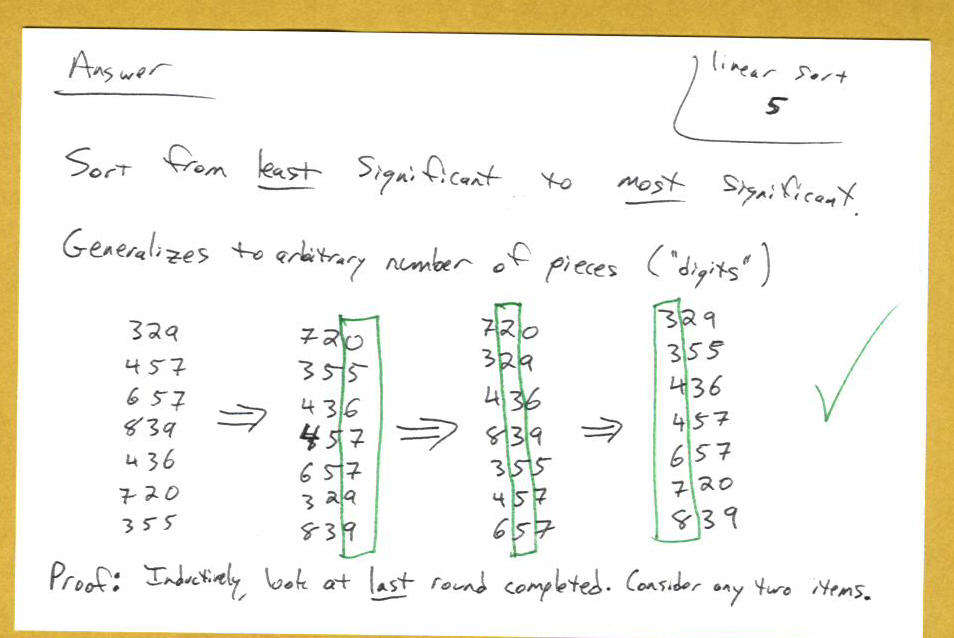 Answer
linear sort
5
Sort from least significant to most significant.
Generalizes to arbitrary number of pieces ("digits")
329 720 720 329
457 355 329 355
657 436 436 436
839 ⇒ 457 ⇒ 839 ⇒ 457
436 657 355 657
720 329 457 720
355 839 657 839
Proof: Inductively, look at last round completed. Consider any two items.